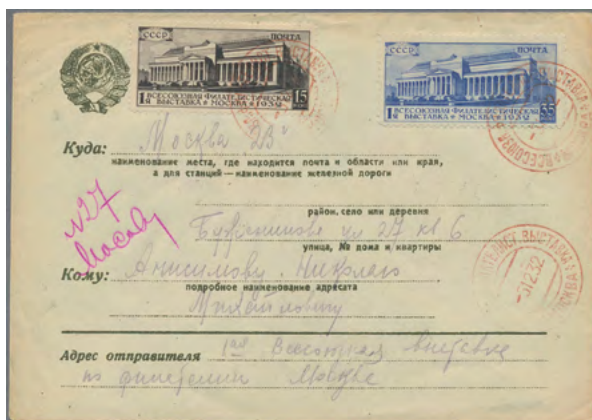 СССР ПОЧТА
1Я ВСЕСОЮЗНАЯ ФИЛАТЕЛИСТИЧЕСКАЯ
ВЫСТАВКА МОСКВА 1932 15
СССР ПОЧТА
1Я ВСЕСОЮЗНАЯ ФИЛАТЕЛИСТИЧЕСКАЯ
ВЫСТАВКА МОСКВА 1932 35
Куда: Москва 23
наименование места, где находится почта и области или края,
а для станций — наименование железной дороги
район, село или деревня
ул 27 кв 6
улица, № дома и квартиры
№27
Кому: Анисимову Николаю
подробное наименование адресата
Михайловичу
ВЫСТАВКА
-5.12.32
МОСКВА
Адрес отправителя 1ая Всесоюзная выставка
по филателии Москва